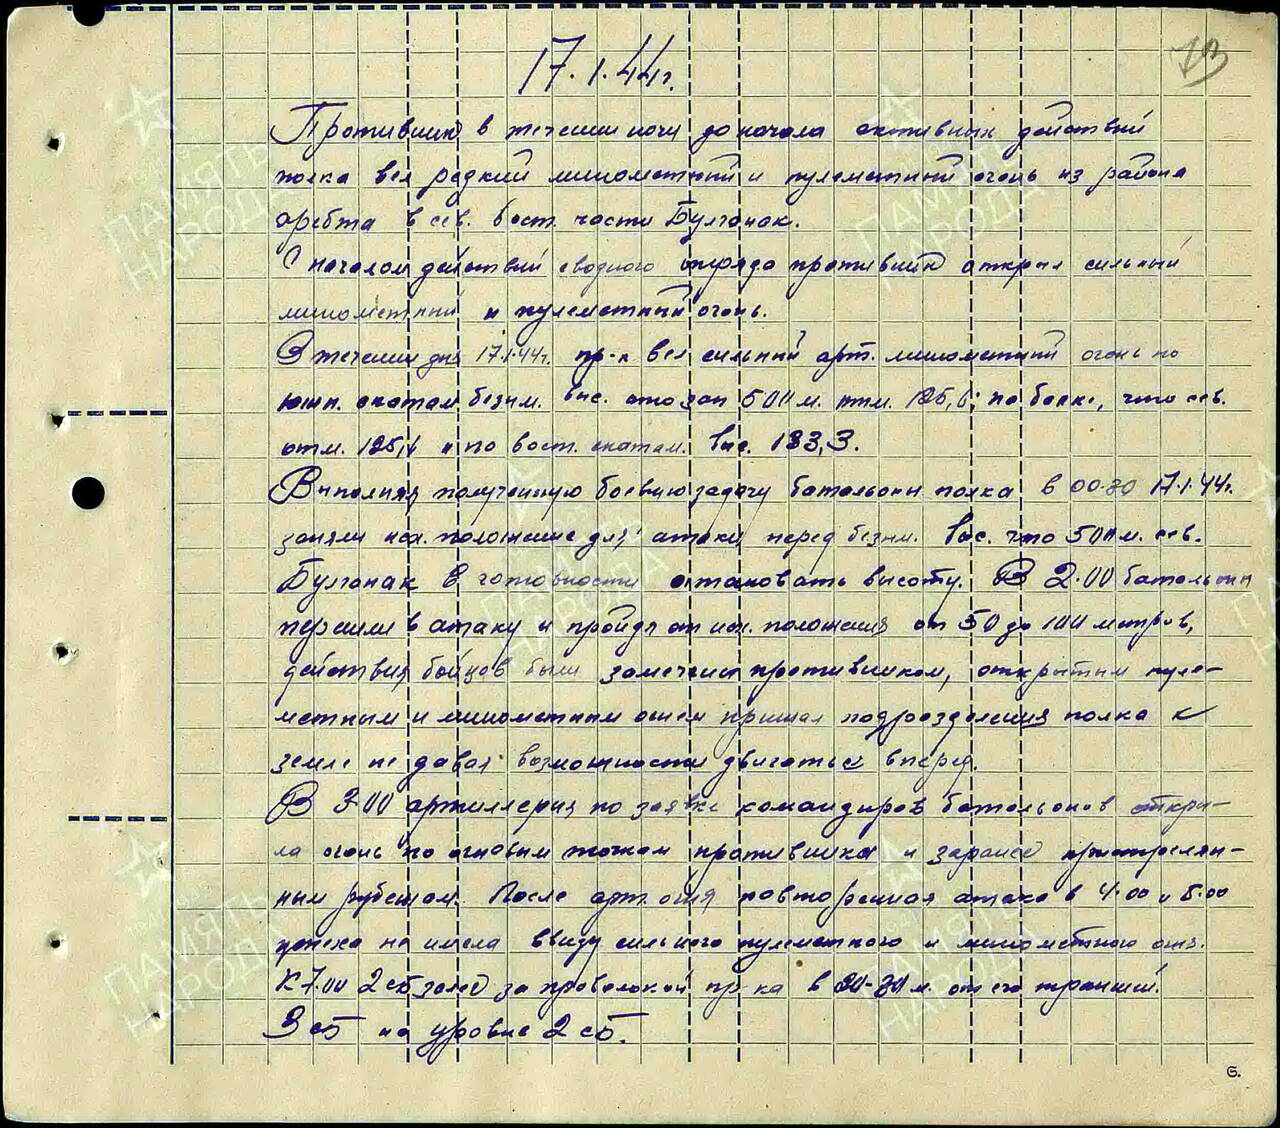 73
17.1.44г.
Противник в течении ночи до начала активных действий
полка вел редкий минометный и пулеметный огонь из района
хребта в сев. вост. части Булганак.
С началом действий сводного отряда противник открыл сильный
минометный и пулеметный огонь.
В течении дня 17.1.44г. пр-к вел сильный арт. минометный огонь по
юж. скатам безим. выс. что зап 500 м. отм. 125,6; по балке, что сев.
отм. 125,6 и по вост. скатам. выс. 133,3.
Выполняя полученную боевую задачу батальоны полка в 00-30 17.1.44г.
заняли исх. положение для атаки перед безим. выс. что 500 м. сев.
Булганак в готовности атаковать высоту. В 2.00 батальоны
перешли в атаку и пройдя от исх. положения от 50 до 100 метров,
действия бойцов были замечены противником, открытым пуле-
метным и минометным огнем прижал подразделения полка к
земле не давая возможности двигаться вперед.
В 3-00 артиллерия по заявке командиров батальонов откры-
ла огонь по огневым точкам противника и заранее пристрелян-
ным рубежам. После арт. огня повторенная атака в 4.00 и 5.00
успеха не имела ввиду сильного пулеметного и минометного огня.
К 7.00 2 сб залег за проволокой пр-ка в 20-30 м. от его траншей.
3 сб на уровне 2 сб.
ПАМЯТЬ
НАРОДА
ПАМЯТЬ
НАРОДА
ПАМЯТЬ
НАРОДА
ПАМЯТЬ
НАРОДА
ПАМЯТЬ
НАРОДА